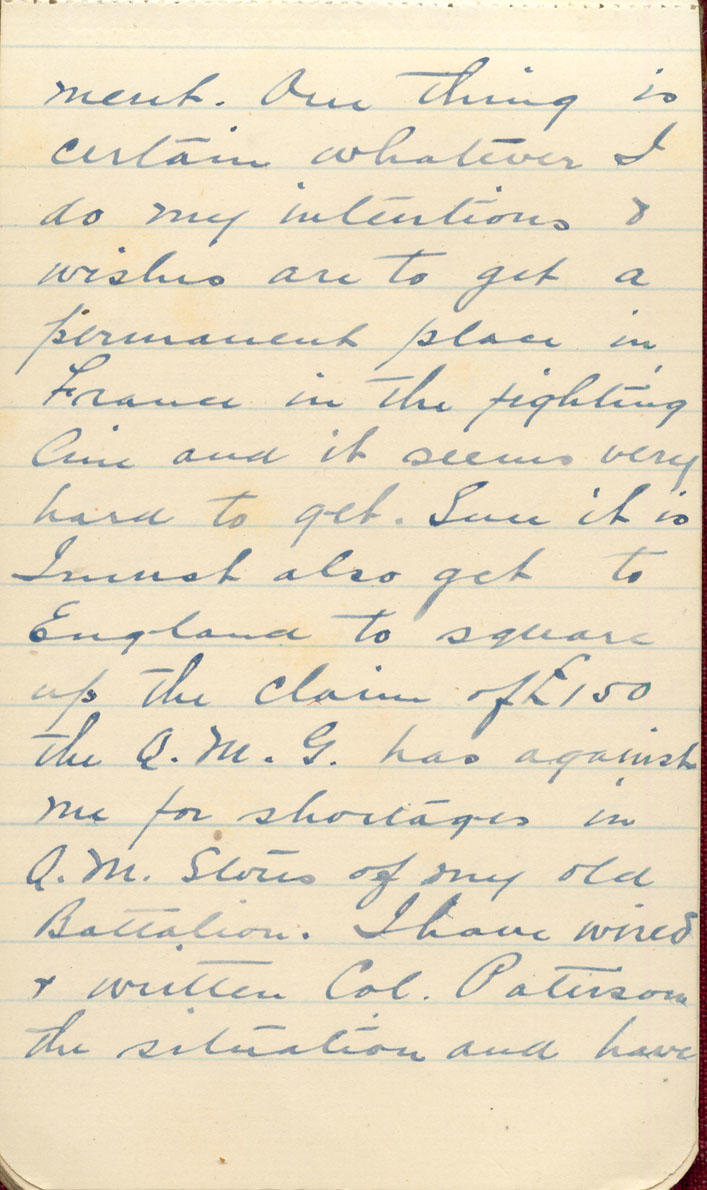 ment. One thing is
certain whatever I
do my intentions &
wishes are to get a
permanent place in
France in the fighting
line and it seems very
hard to get. Sure it is
I must also get to
England to square
up the claim of £150
the Q.M.G. has against
me for shortages in
Q.M. Stores of my old
Battalion. I have wired
& written Col. Paterson
the situation and have